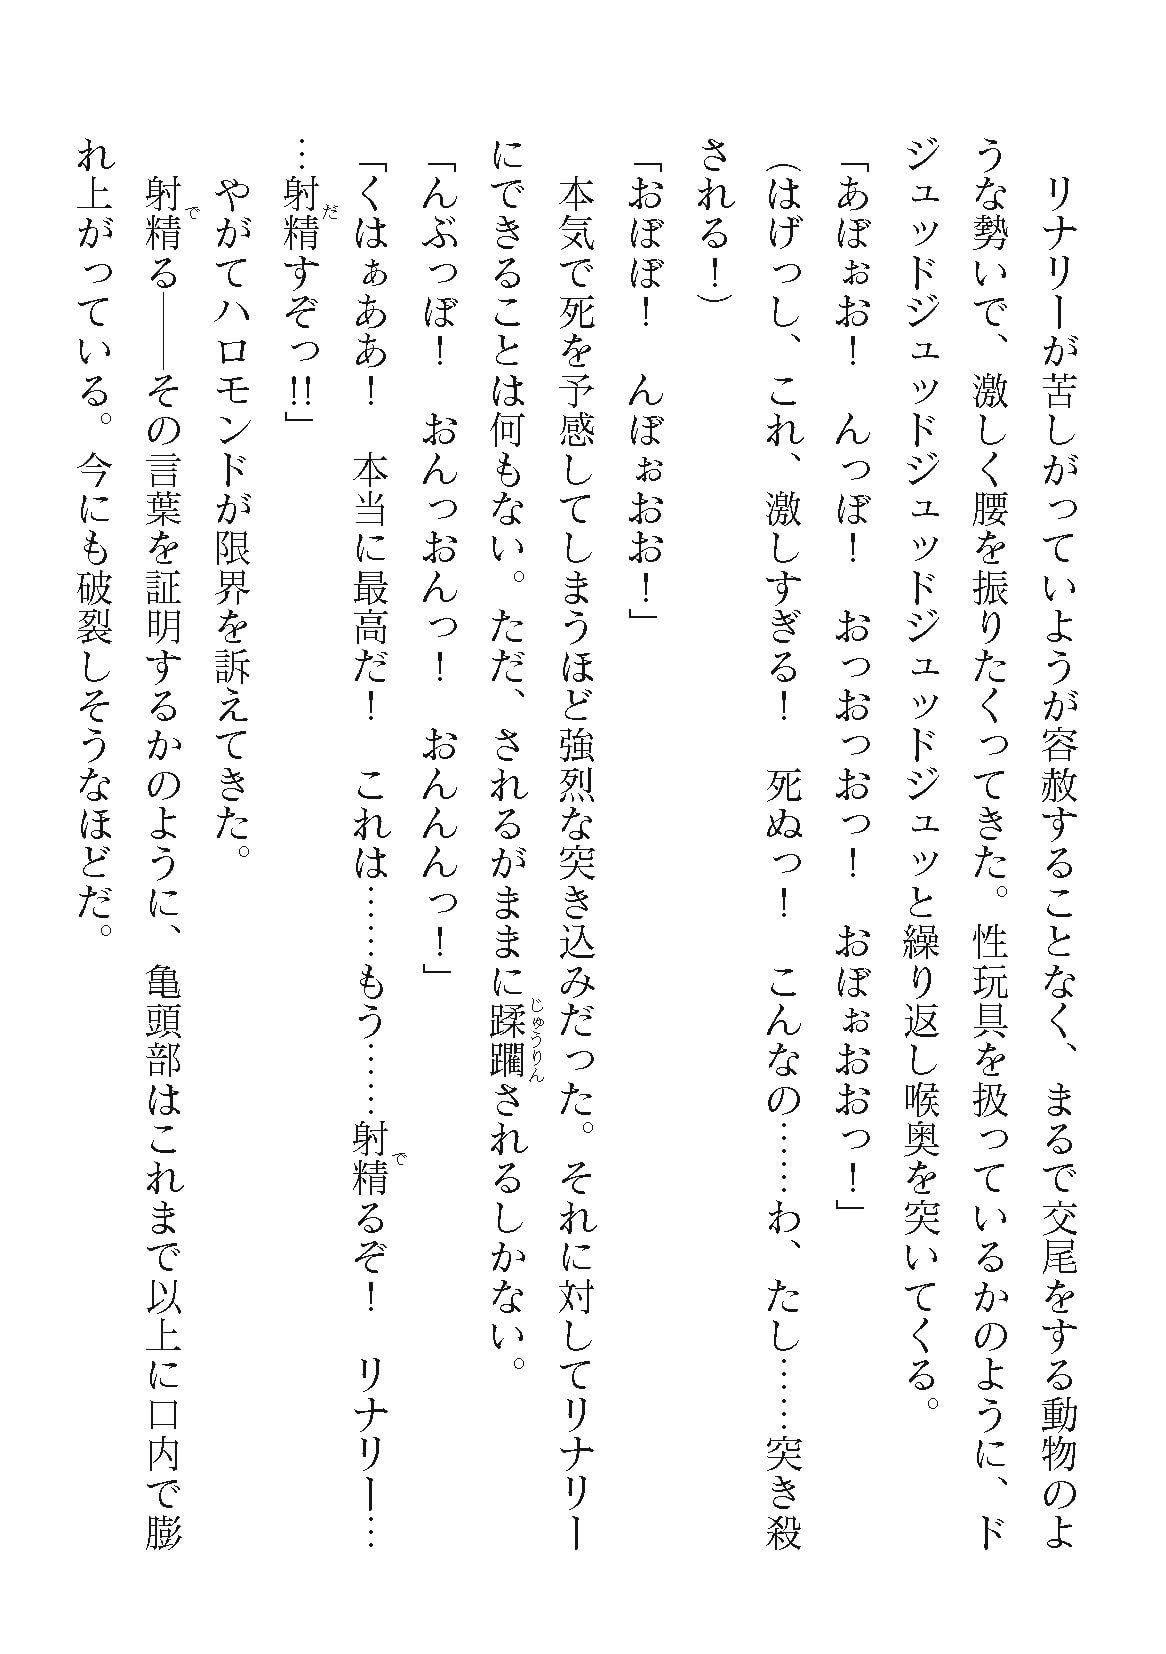 リナリーが苦しがっていようが容赦することなく、まるで交尾をする動物のよ
うな勢いで、激しく腰を振りたくってきた。性玩具を扱っているかのように、ド
ジュッドジュッドジュッドジュッドジュッと繰り返し喉奥を突いてくる。
「あぼぉお！　んっぼ！　おっおっおっ！　おぼぉおおっ！」
(はげっし、これ、激しすぎる！　死ぬっ！　こんなの……わ、たし……突き殺
される！)
「おぼぼ！　んぼぉおお！」
本気で死を予感してしまうほど強烈な突き込みだった。それに対してリナリー
じゅうりん
にできることは何もない。ただ、されるがままに蹂躙されるしかない。
「んぶっぼ！　おんっおんっ！　おんんんっ！」
で
「くはぁああ！　本当に最高だ！　これは……もう……射精るぞ！　リナリー…
だ
…射精すぞっ!!」
やがてハロモンドが限界を訴えてきた。
で
射精る――その言葉を証明するかのように、亀頭部はこれまで以上に口内で膨
れ上がっている。今にも破裂しそうなほどだ。